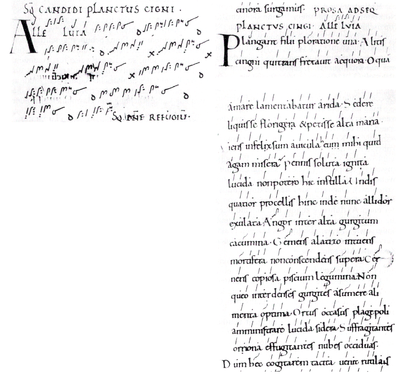 SQ CANDIDI PLANCTUS CIGNI.
ALLE LUIA
canora surgamus. PROSA AD SEQ
PLANCTUS CINGI. ALLE LUIA
Plangant filii ploratione una Alitis
cingni qui transfretauit aequora O qua
amare lamentabatur arida Se dere
liquisse florigera & petisse alta maria
infelix sum auicula mihi quid
agam misera Pennis soluta igniti
lucida non potero hic in stilla Undis
quatior procellis hinc inde nunc allidor
exulata Angor inter alta gurgitum
cacumina Gemens alatizo intuens
mortifera non conscendens supera Cer
nens copiosa piscium legumina Non
queo in denses gurgites assumere ali
menta optima Ortus occasus plage poli
amministrate lucida sidera Suffragitantes
oriona effugitantes nubes occiduas.
Dum hec cogitarem tacita uenit rutilans